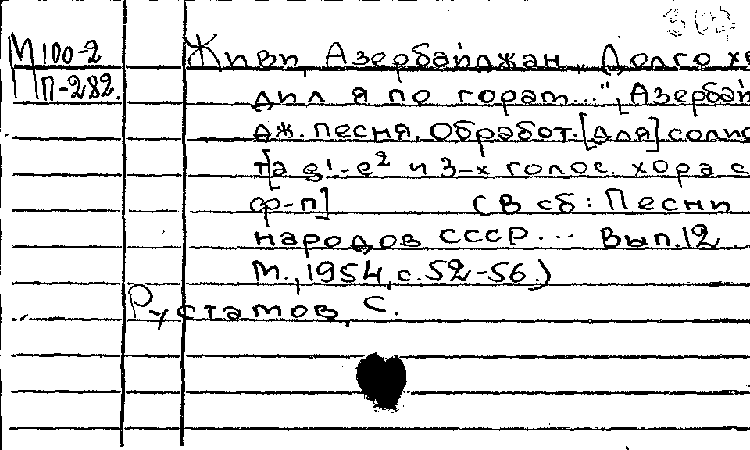 М 100-2 Живи, Азербайджан. "Долго хо
П-282. дил я по горам...", [Азербай
дж. песня. Обработ. [для] солис
та g¹-e² и 3-х голос. хора с
ф-п] (В сб: Песни
народов СССР... Вып. 12
М., 1954, с. 52-56.)
Рустамов, С.